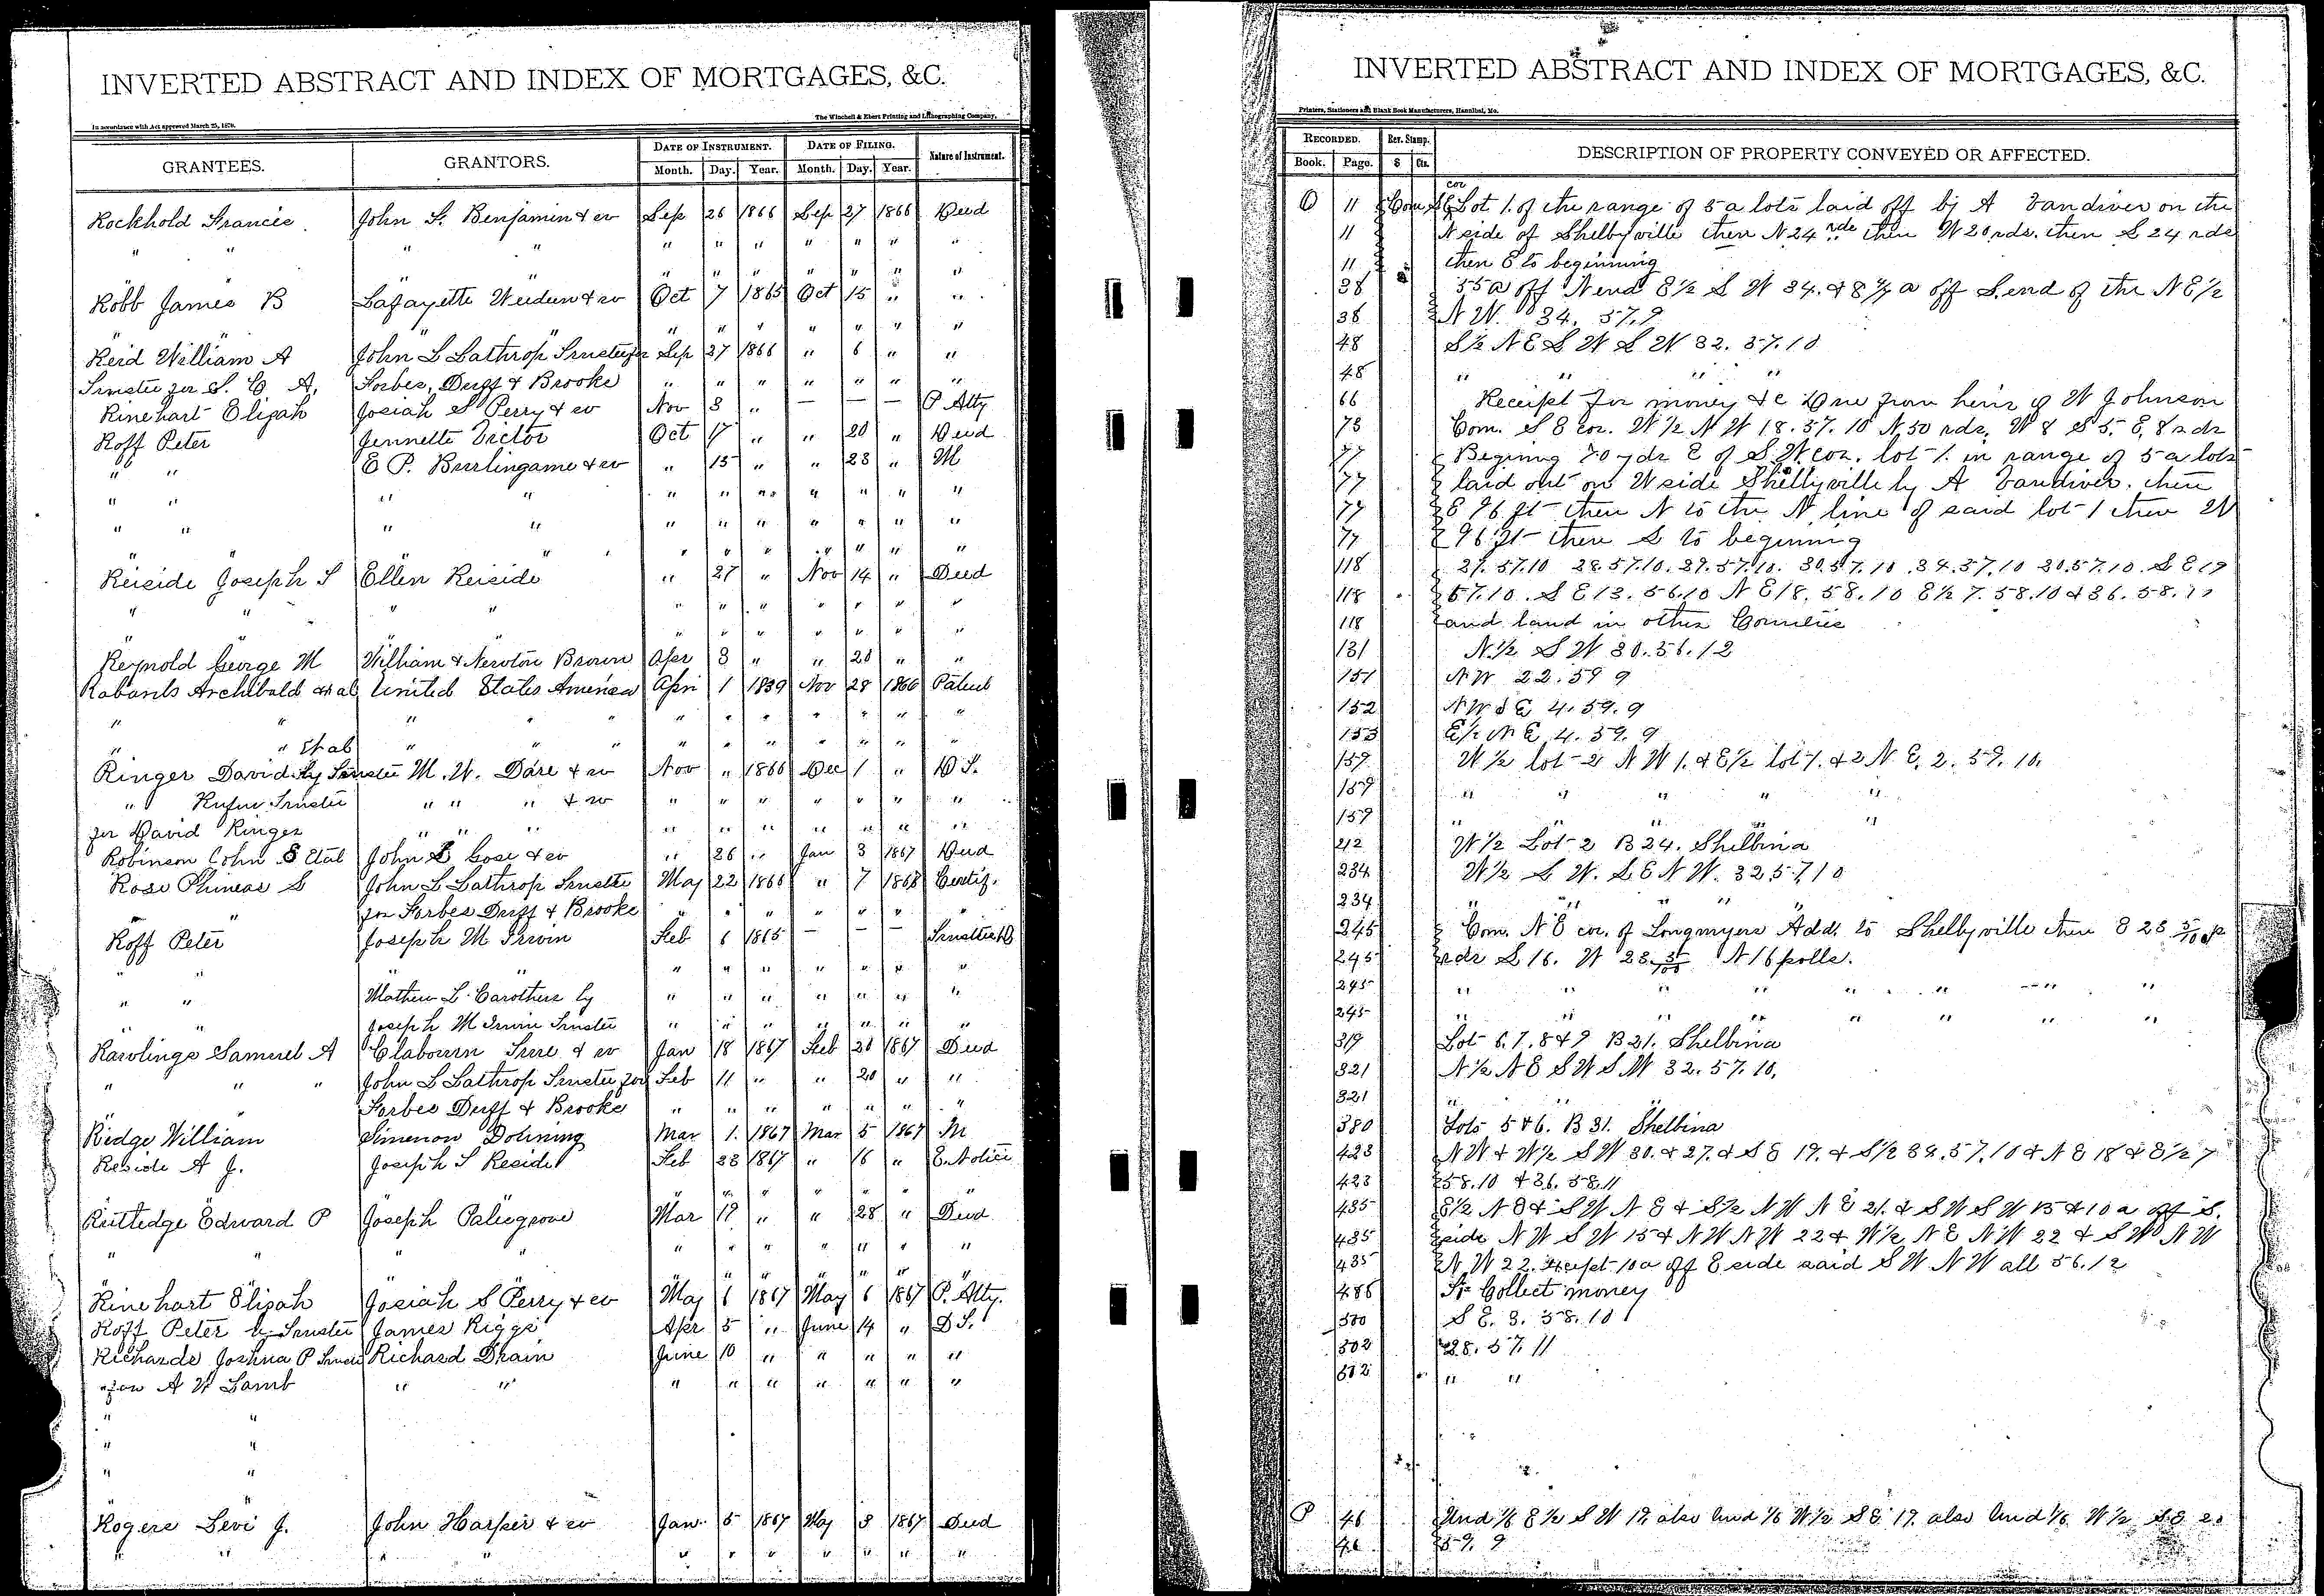 INVERTED ABSTRACT AND INDEX OF MORTGAGES, &C.
In accordance with Act approved March 25, 1870.
The Winchell & Ebert Printing and Lithographing Company,
GRANTEES. GRANTORS. DATE OF INSTRUMENT. DATE OF FILING. Nature of Instrument.
Month. Day. Year. Month. Day. Year.
Rockhold Francis John F. Benjamin & w Sep 26 1866 Sep 27 1866 Deed
" " " " " " " " " " "
" " " " " " "
Robb James B Lafayette Weeden & w Oct 7 1865 Oct 15 " "
" " " " " " " " "
Reid William A John L Lathrop Trustee for Sep 27 1866 " 6 " "
Trustee for S. C. A. Forbes, Duff & Brooke " " " " " " "
Rinehart Elijah Josiah S Perry & w Nov 3 " — — — P Atty
Roff Peter Jennette Victor Oct 17 " " 20 " Deed
" " E P. Burlingame & w " 15 " " 23 " M
" " " " " " " " " " "
" " " " " " " " " " "
" " " " " " " " "
Reiside Joseph S Ellen Reiside " 27 " Nov 14 " Deed
" " " " " " " " " " "
" " " " " " " " "
Reynold George M William & Newton Brown Apr 3 " " 20 " "
Rabards Archibald et al United States America Apri 1 1839 Nov 28 1866 Patent
" " " " " " " " " " " "
" " Et al " " " " " " " " " "
Ringer David by Trustee M. W. Dare & w Nov " 1866 Dec 1 " D T.
" Rufus Trustee " " " & w " " " " " " "
for David Ringer " " " " " " " " " "
Robinson John S Etal John S Gose & w " 26 " Jan 3 1867 Deed
Rose Phineas S John L Lathrop Trustee May 22 1866 " 7 1868 Certif.
" for Forbes Duff & Brooke " " " " " " "
Roff Peter Joseph M Irwin Feb 6 1865 — — — Trustee D
" " " " " " " " " " "
" " Mathew L. Carothers by " " " " " " "
" " Joseph M Irwin Trustee " " " " " " "
Rawlings Samuel A Clabourn True & w Jan 18 1867 Feb 20 1867 Deed
" " " John L Lathrop Trustee for Feb 11 " " 20 " "
Forbes Duff & Brooke " " " " " " "
Ridge William Simenon Dohning Mar 1. 1867 Mar 5 1867 M
Reside A J. Joseph S Reside Feb 23 1867 " 16 " E. Notice
" " " " " " "
Rutledge Edward P Joseph Palegrove Mar 19 " " 28 " Deed
" " " " " " " " " " "
" " " " " "
Rinehart Elijah Josiah S Perry & w May 6 1867 May 6 1867 P. Atty.
Roff Peter by Trustee James Riggs Apr 5 " June 14 " D T.
Richards Joshua P Trustee Richard Drain June 10 " " " " "
for A W Lamb " " " " " " " " "
" "
" "
" "
Rogers Levi J. John Harper & w Jan. 5 1867 May 8 1867 Deed
" " " " " " " " " " "
INVERTED ABSTRACT AND INDEX OF MORTGAGES, &C.
Printers, Stationers and Blank Book Manufacturers, Hannibal, Mo.
RECORDED. Rev. Stamp. DESCRIPTION OF PROPERTY CONVEYED OR AFFECTED.
Book. Page. $ Cts.
O 11 Com. SE cor Lot 1. of the range of 5 a lots laid off by A Vandiver on the
11 N side of Shelbyville then N 24 rds then W 20 rds. then S 24 rds
11 then E to beginning
38 55 a off N end E½ S W 34. & 8 a off S. end of the N E ½
38 N W. 34. 57. 9
48 S½ N E S W S W 32. 57. 10
48 " " " "
66 Receipt for money &c Due from heirs of W Johnson
73 Com. S E cor. W ½ N W 18. 57. 10 N. 50 rds. W 8 S 5. E. 8 rds
77 Begining 70 yds E of S. W. cor. lot 1. in range of 5 a lots
77 laid out on W side Shelbyville by A Vandiver. then
77 E 96 ft then N to the N line of said lot 1 then W
77 96 ft then S to beginning
118 27. 57.10 28. 57.10. 29. 57.10. 30. 57. 10 .34. 57. 10 20. 57. 10. S E 19
118 57.10. S E 13. 56.10 N E 18. 58. 10 E½ 7. 58. 10 & 36. 58. 11
118 and land in other Counties
131 N.½ S W 30. 56. 12
151 N W 22. 59 9
152 N W S E 4. 59. 9
153 E½ N E 4. 59. 9
159 W ½ lot 2 N W 1. & E½ lot 1. & 2 N. E. 2. 59. 10.
159 " " " " "
159 " " " "
212 W ½ Lot 2 B 24. Shelbina
234 W ½ S W. S E N W. 32 57 10
234 " " " "
245 Com. N E cor. of Longmyers Add. to Shelbyville then E 28
245 rds S 16. W 28. N 16 polls.
245 " " " " " " " "
245 " " " " " " " "
319 Lot 6. 7. 8 & 9 B 21. Shelbina
321 N ½ N E S W S W 32. 57. 10.
321 " "
380 Lots 5 & 6. B 31. Shelbina
423 N W & W½ S W 30. & 27. & S E 19. & S½ 34. 57. 10 & N E 18 & E½ 7
423 58. 10 & 36. 58. 11
435 E½ N E & S W N E & S½ N W N E 21. & S W S W 15 & 10 a off S.
435 side N W S W 15 & N W N W 22 & W½ N E N W 22 & S W N W
435 N. W 22. Except 10 a off E side said S W N W all 56. 12
486 To Collect money
500 S E. 3. 58. 10
502 28. 57. 11
502 " "
P 46 Und 1/6 E ½ S W 17. also Und 1/6 W ½ S E 17. also Und 1/6 W ½ S E 20
46 59. 9